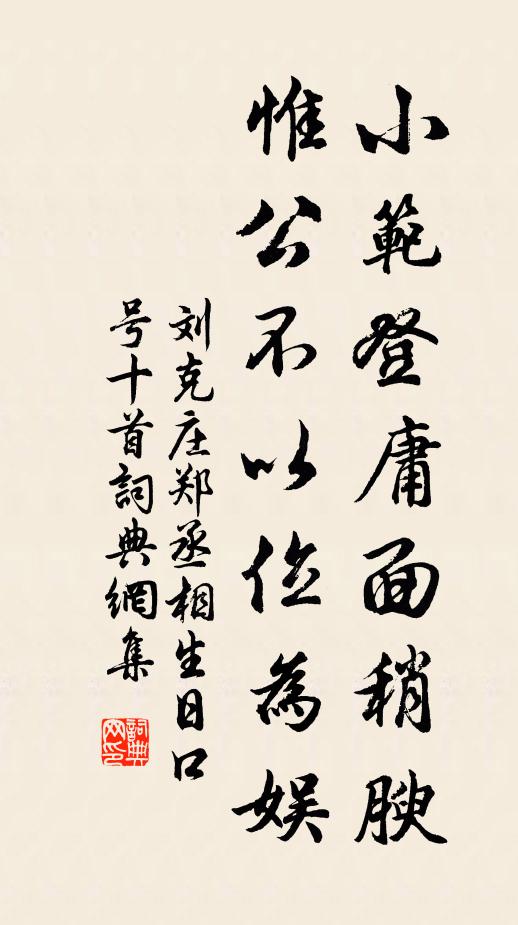 小範登庸面稍腴
惟公不以位為娱
刘克庄郑丞相生日口
号十首詞典網集
詞典网印